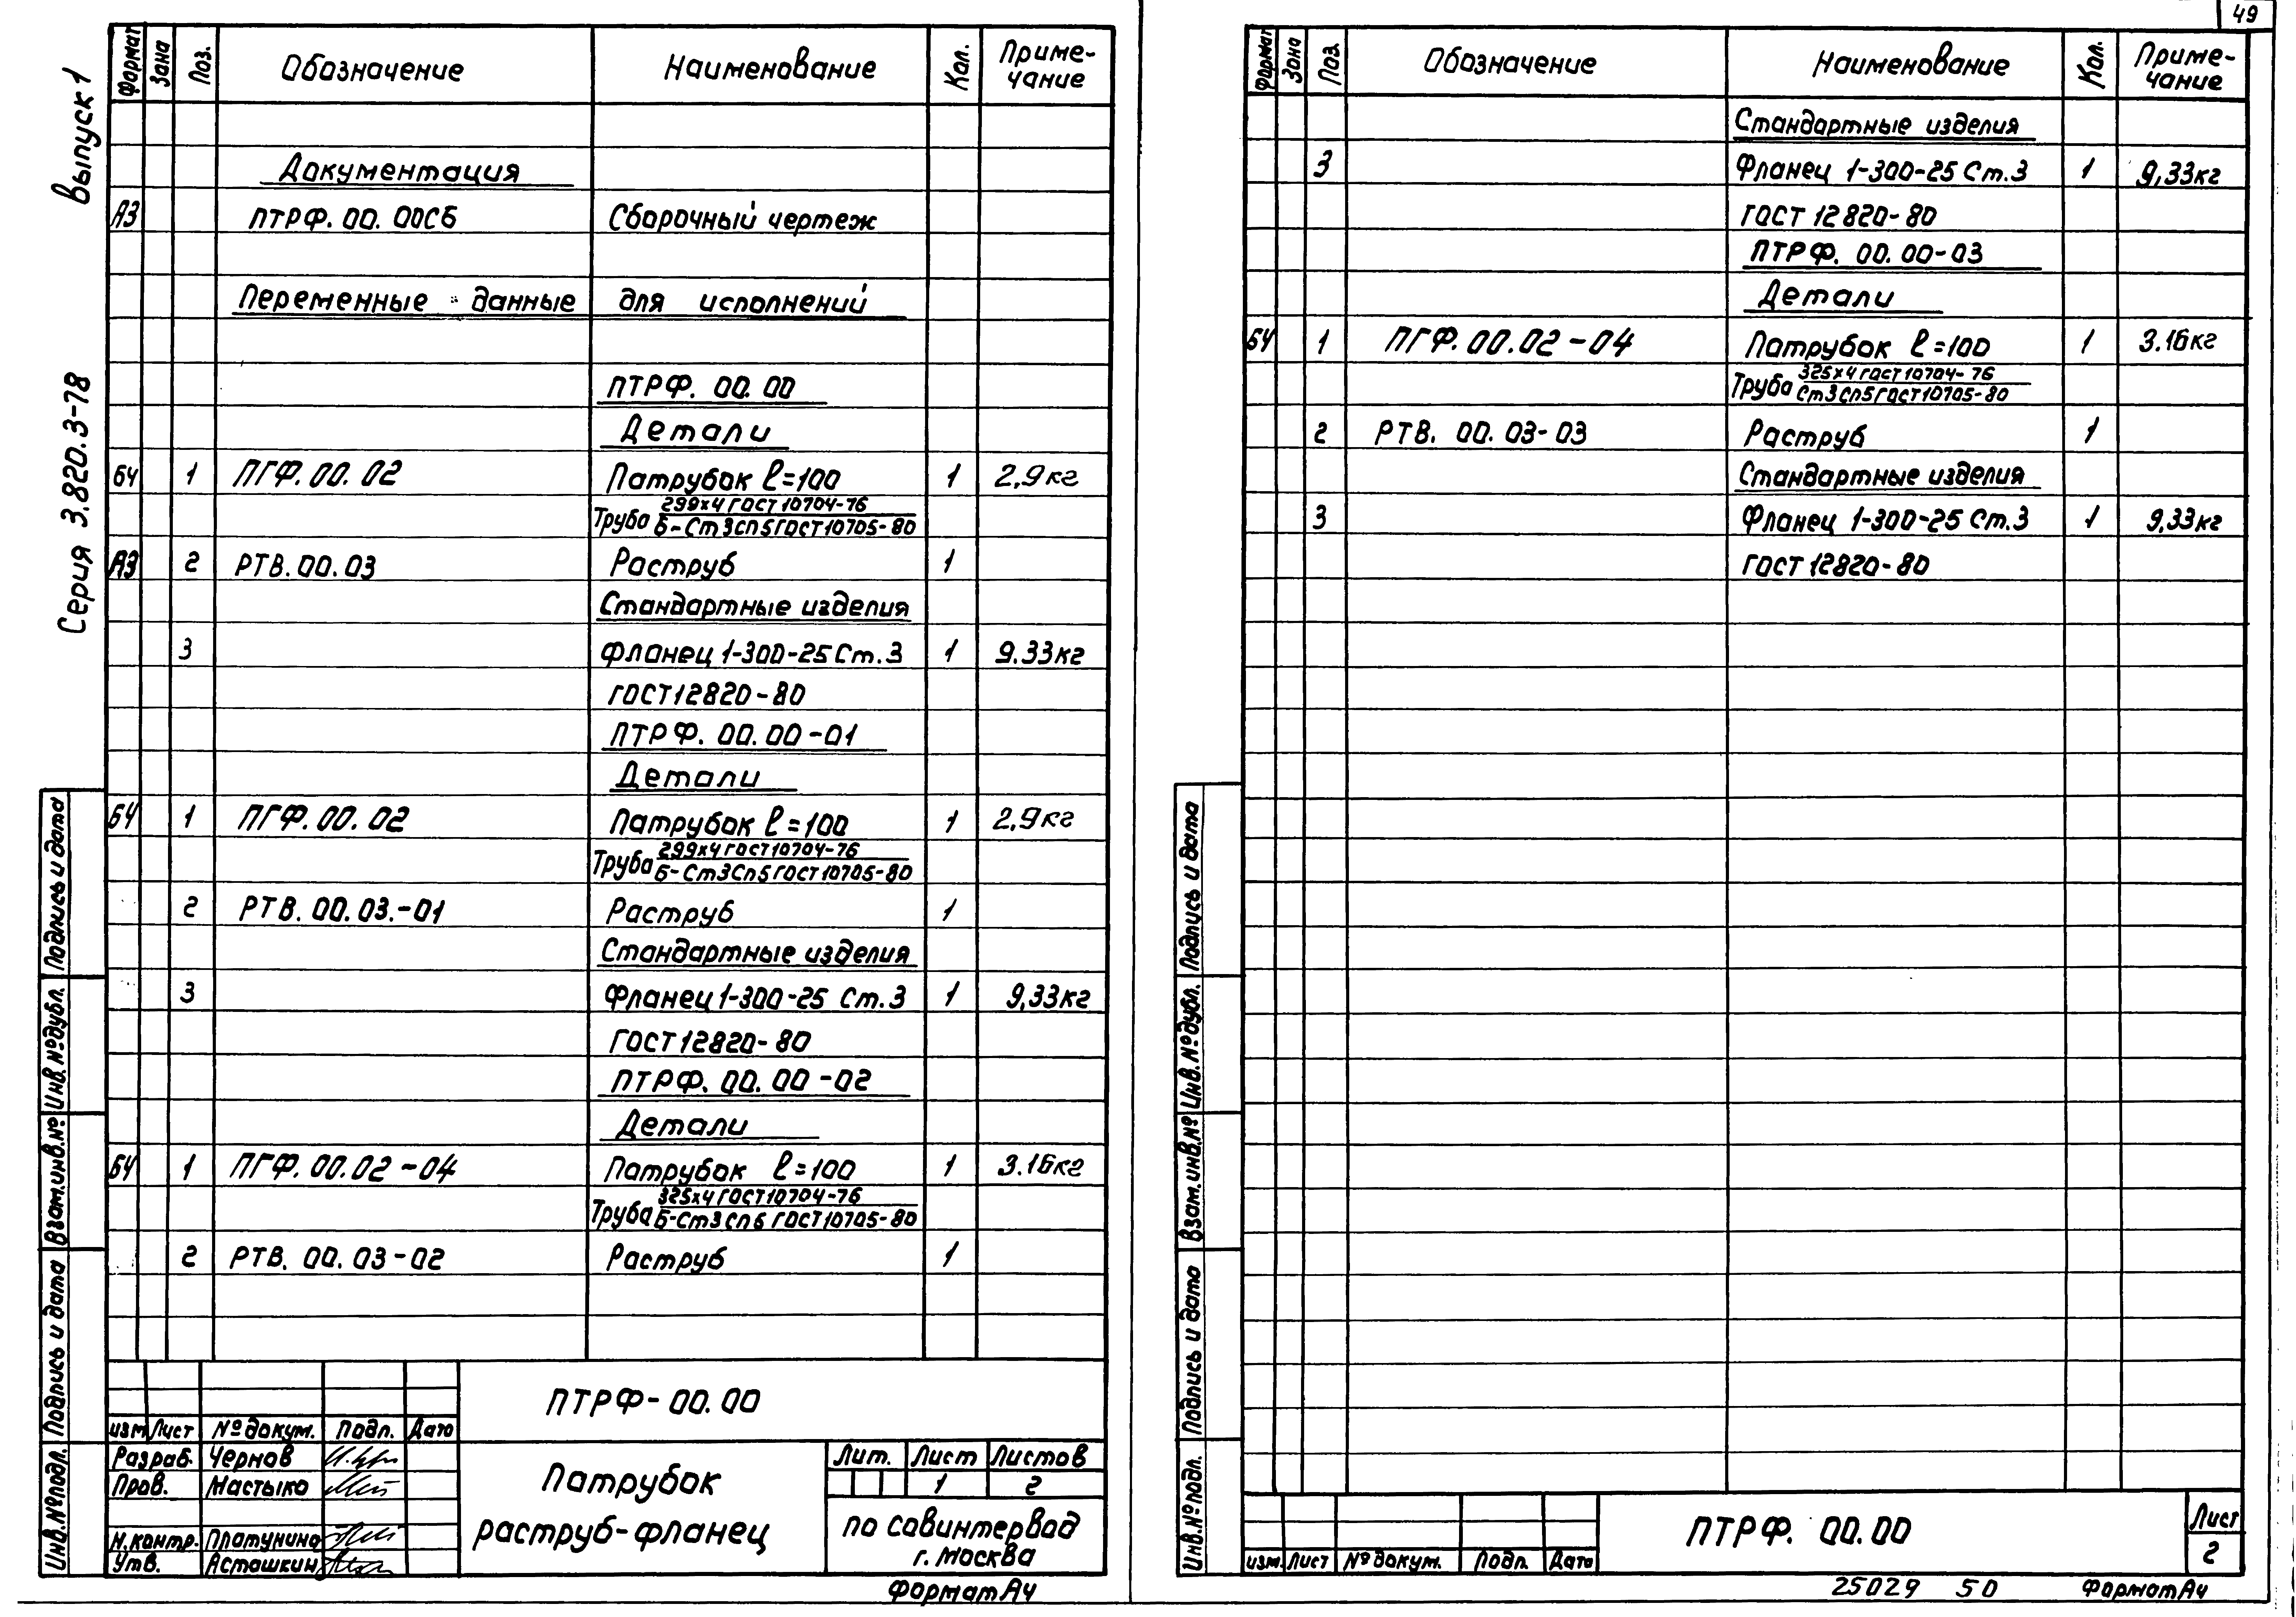 49
Серия 3.820.3-78 Выпуск 1
Формат Зона Поз. Обозначение Наименование Кол. Приме-
чание
Документация
А3 ПТРФ. 00. 00СБ Сборочный чертеж
Переменные данные для исполнений
ПТРФ. 00. 00
Детали
БЧ 1 ПГФ. 00. 02 Патрубок ℓ=100 1 2,9кг
299х4 ГОСТ 10704-76
Труба Б-Ст3сп5 ГОСТ 10705-80
А3 2 РТВ. 00. 03 Раструб 1
Стандартные изделия
3 Фланец 1-300-25 Ст.3 1 9.33кг
ГОСТ 12820-80
ПТРФ. 00. 00-01
Детали
БЧ 1 ПГФ. 00. 02 Патрубок ℓ=100 1 2,9кг
299х4 ГОСТ 10704-76
Труба Б-Ст3сп5 ГОСТ 10705-80
2 РТВ. 00. 03.-01 Раструб 1
Стандартные изделия
3 Фланец 1-300-25 Ст.3 1 9,33кг
ГОСТ 12820-80
ПТРФ. 00. 00-02
Детали
БЧ 1 ПГФ. 00. 02-04 Патрубок ℓ=100 1 3.16кг
325х4 ГОСТ 10704-76
Труба Б-Ст3сп6 ГОСТ 10705-80
2 РТВ. 00. 03-02 Раструб 1
ПТРФ-00. 00
изм Лист № докум. Подп. Дата
Разраб. Чернов
Пров. Мастыко
Н.контр. Платунина
Утв. Асташкин
Патрубок
раструб-фланец
Лит. Лист Листов
1 2
ПО Совинтервод
г. Москва
Формат А4
Подпись и дата
Инв.№ дубл.
Взам.инв.№
Подпись и дата
Инв.№ подл.
Формат Зона Поз. Обозначение Наименование Кол. Приме-
чание
Стандартные изделия
3 Фланец 1-300-25 Ст.3 1 9,33кг
ГОСТ 12820-80
ПТРФ. 00. 00-03
Детали
БЧ 1 ПГФ. 00. 02-04 Патрубок ℓ=100 1 3.16кг
325х4 ГОСТ 10704-76
Труба Ст3сп5 ГОСТ 10705-80
2 РТВ. 00. 03-03 Раструб 1
Стандартные изделия
3 Фланец 1-300-25 Ст.3 1 9,33кг
ГОСТ 12820-80
Подпись и дата
Инв.№ дубл.
Взам.инв.№
Подпись и дата
Инв.№ подл.
изм. Лист № докум. Подп. Дата
ПТРФ. 00. 00
Лист
2
25029 50 Формат А4